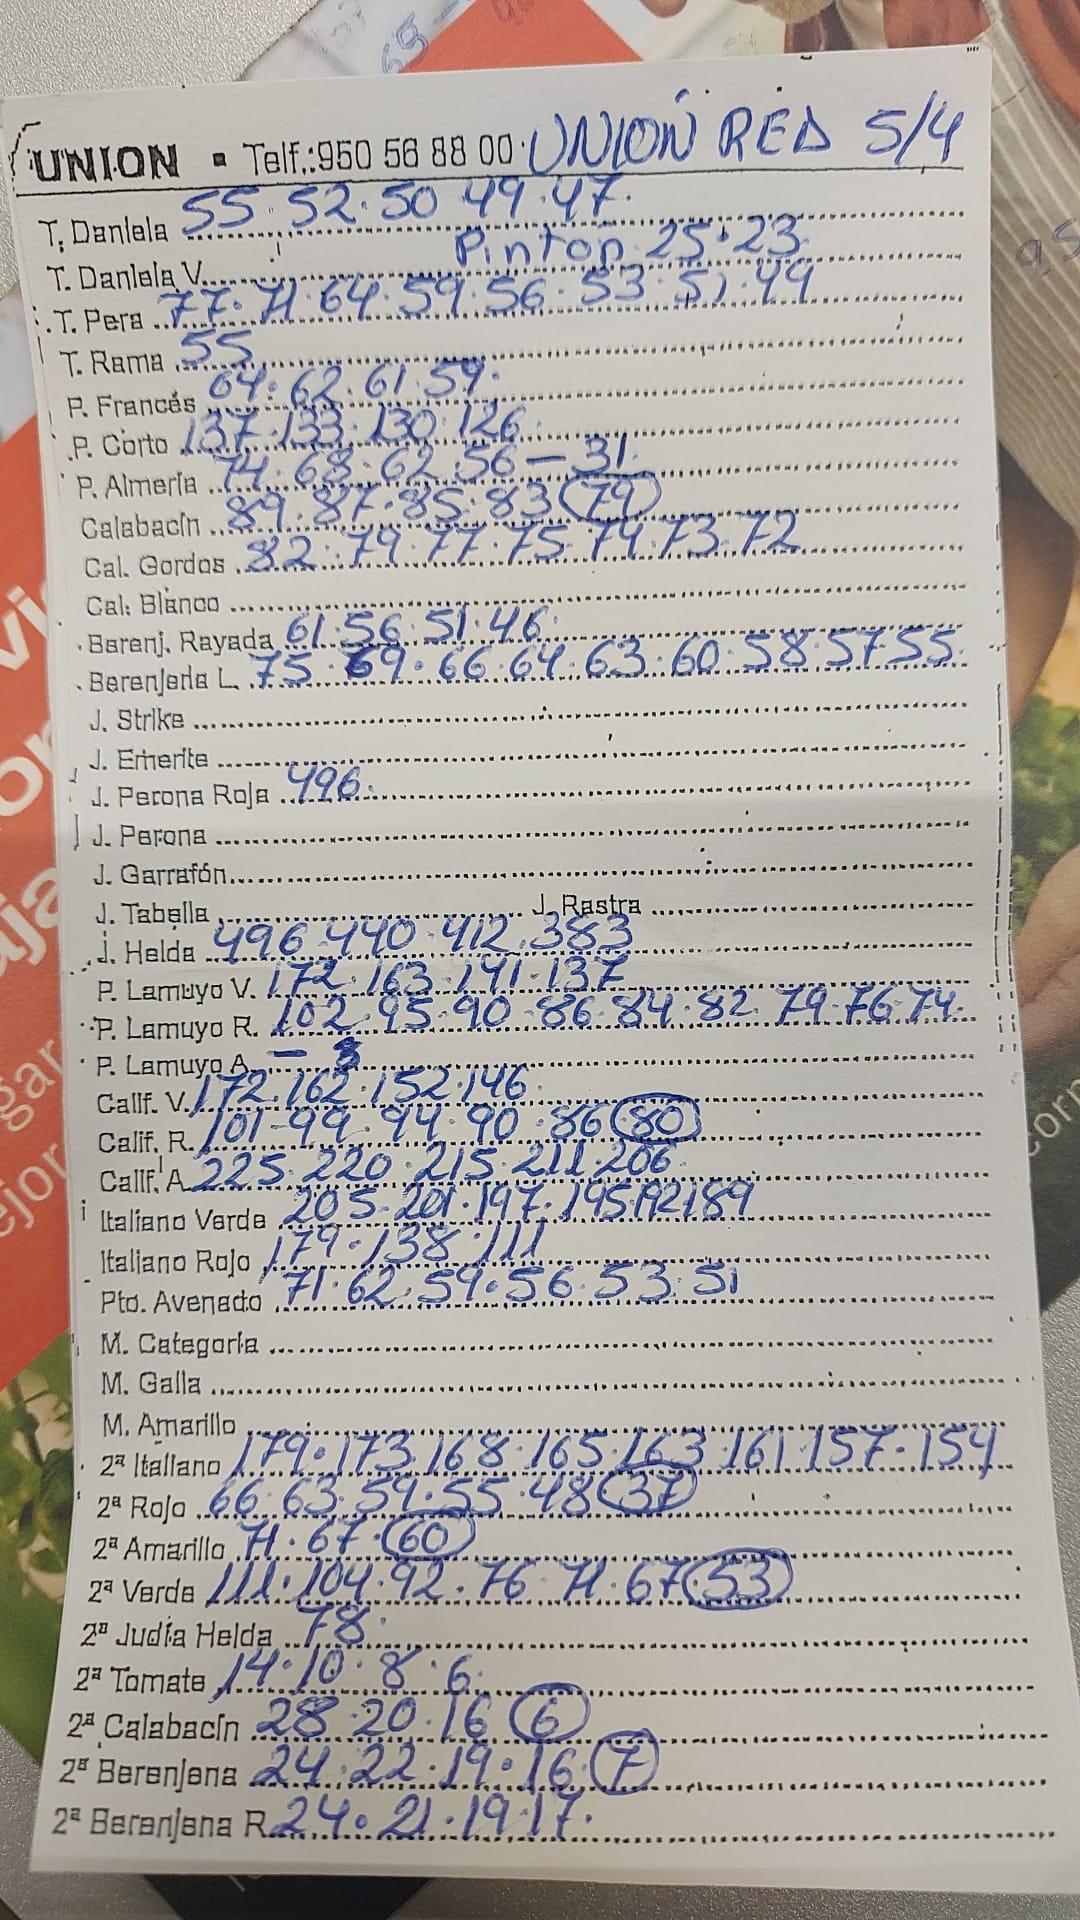 UNION ▪ Telf.:950 56 88 00 UNION RED 5/4
T. Daniela 55.52.50 49.47.
T. Daniela V. Pinton 25.23
T. Pera 77.71.64.59.56.53.51.49
T. Rama 55
P. Francés 64.62.61.59.
P. Corto 137.133.130.126
P. Almería 74.68.62.56-31.
Calabacín 89.87.85.83 79
Cal. Gordos 82.79.77.75.74.73.72
Cal. Blanco
Berenj. Rayada 61.56.51.46.
Berenjena L. 75.69.66.64.63.60.58.57.55
J. Strike
J. Emerite
J. Perona Roja 496.
J. Perona
J. Garrafón
J. Tabella J. Rastra
J. Helda 496.440.412.383
P. Lamuyo V. 172.163.141.137
P. Lamuyo R. 102.95.90.86.84.82.79.76.74.
P. Lamuyo A. -
Calif. V. 172.162.152.146.
Calif. R. 101-99.94.90.86 80
Calif. A. 225.220.215.211.206
Italiano Verde 205.201.197.195.192.189
Italiano Rojo 179.138.111
Pto. Avenado 71.62.59.56.53.51
M. Categoría
M. Galia
M. Amarillo
2ª Italiano 179.173.168.165.163.161.157.154
2ª Rojo 66.63.59.55.48 37
2ª Amarillo 71.67.60
2ª Verde 111.104.92.76.71.67 53
2ª Judía Helda 78.
2ª Tomate 14.10.8.6.
2ª Calabacín 28.20.16 6
2ª Berenjena 24.22.19.16.7
2ª Berenjena R. 24.21.19.17.